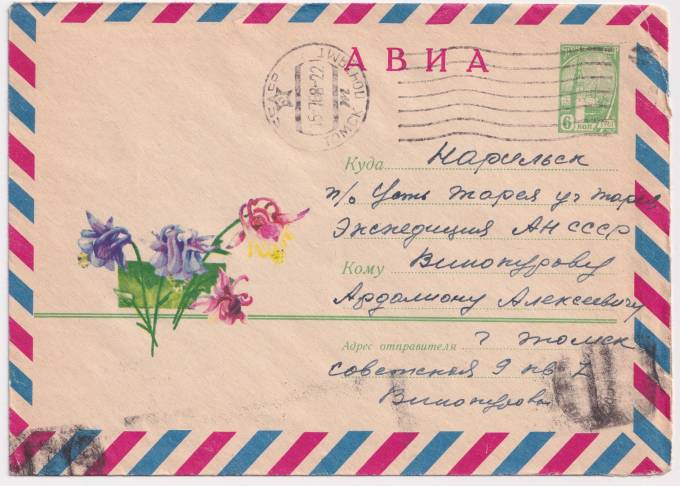 АВИА
СССР
ТОМСК
6 КОП
Куда Нарильск
п/о Усть Тарея уч Тарея
Экспедиция АН СССР
Кому Винокурову
Ардалиону Алексеевичу
Адрес отправителя г Томск
Советская 9 кв
Винокуровы